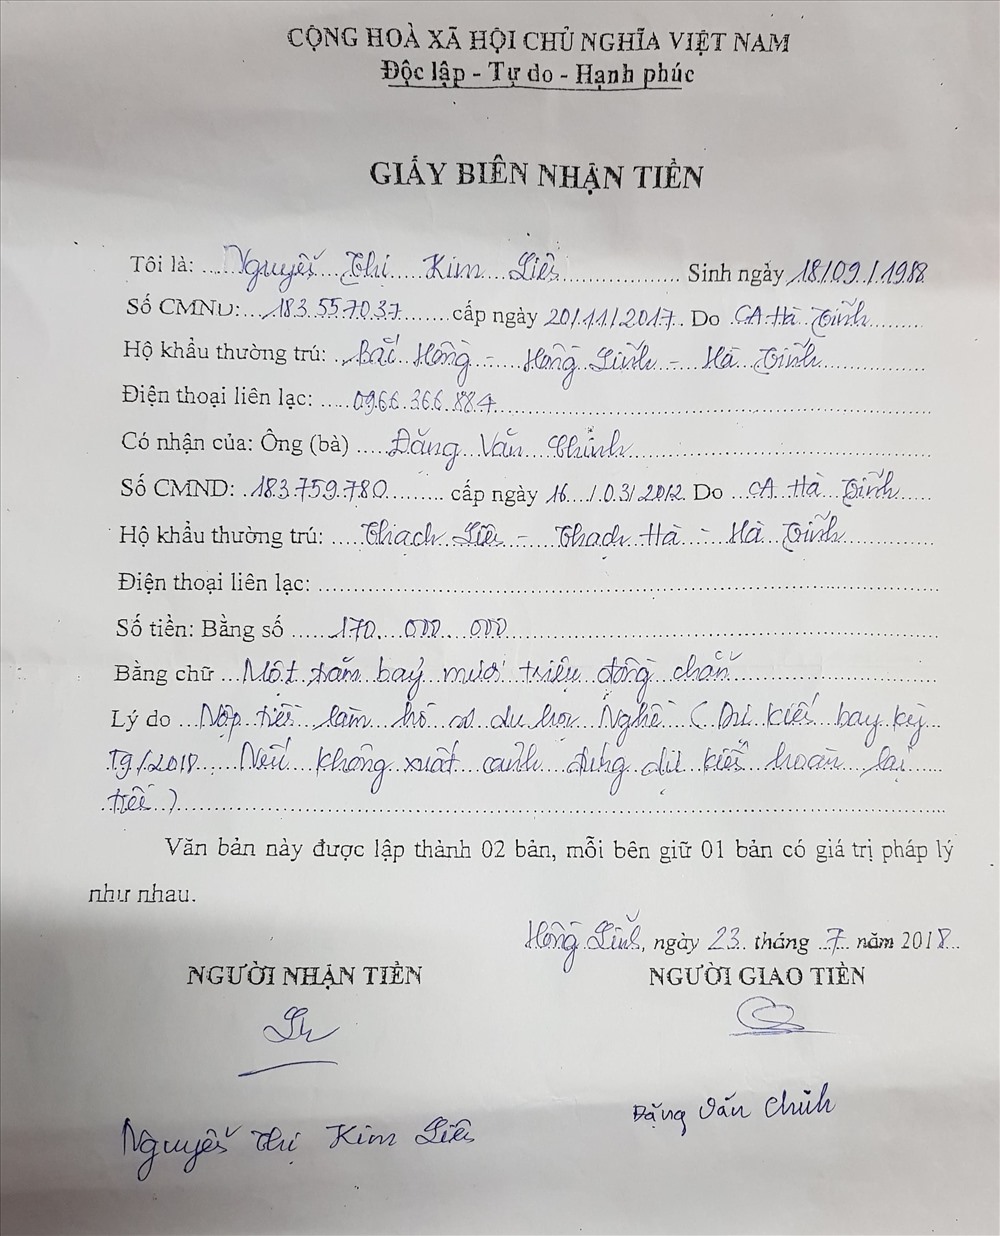 CỘNG HOÀ XÃ HỘI CHỦ NGHĨA VIỆT NAM
Độc lập - Tự do - Hạnh phúc
GIẤY BIÊN NHẬN TIỀN
Tôi là: Nguyễn Thị Kim Liên Sinh ngày 18/09/1988
Số CMND: 183.557.037 cấp ngày 20/11/2017 Do CA Hà Tĩnh
Hộ khẩu thường trú: Bắc Hồng - Hồng Lĩnh - Hà Tĩnh
Điện thoại liên lạc: 0966.366.884
Có nhận của: Ông (bà) Đặng Văn Chinh
Số CMND: 183.759.780 cấp ngày 16/03/2012 Do CA Hà Tĩnh
Hộ khẩu thường trú: Thạch Liên - Thạch Hà - Hà Tĩnh
Điện thoại liên lạc:
Số tiền: Bằng số 170.000.000
Bằng chữ Một trăm bảy mươi triệu đồng chẵn
Lý do Nộp tiền làm hồ sơ du học Nghề (Dự kiến bay kỳ
T9/2018. Nếu không xuất cảnh đúng dự kiến hoàn lại
tiền)
Văn bản này được lập thành 02 bản, mỗi bên giữ 01 bản có giá trị pháp lý
như nhau.
Hồng Lĩnh, ngày 23 tháng 7 năm 2018
NGƯỜI NHẬN TIỀN NGƯỜI GIAO TIỀN
Đặng Văn Chinh
Nguyễn Thị Kim Liên